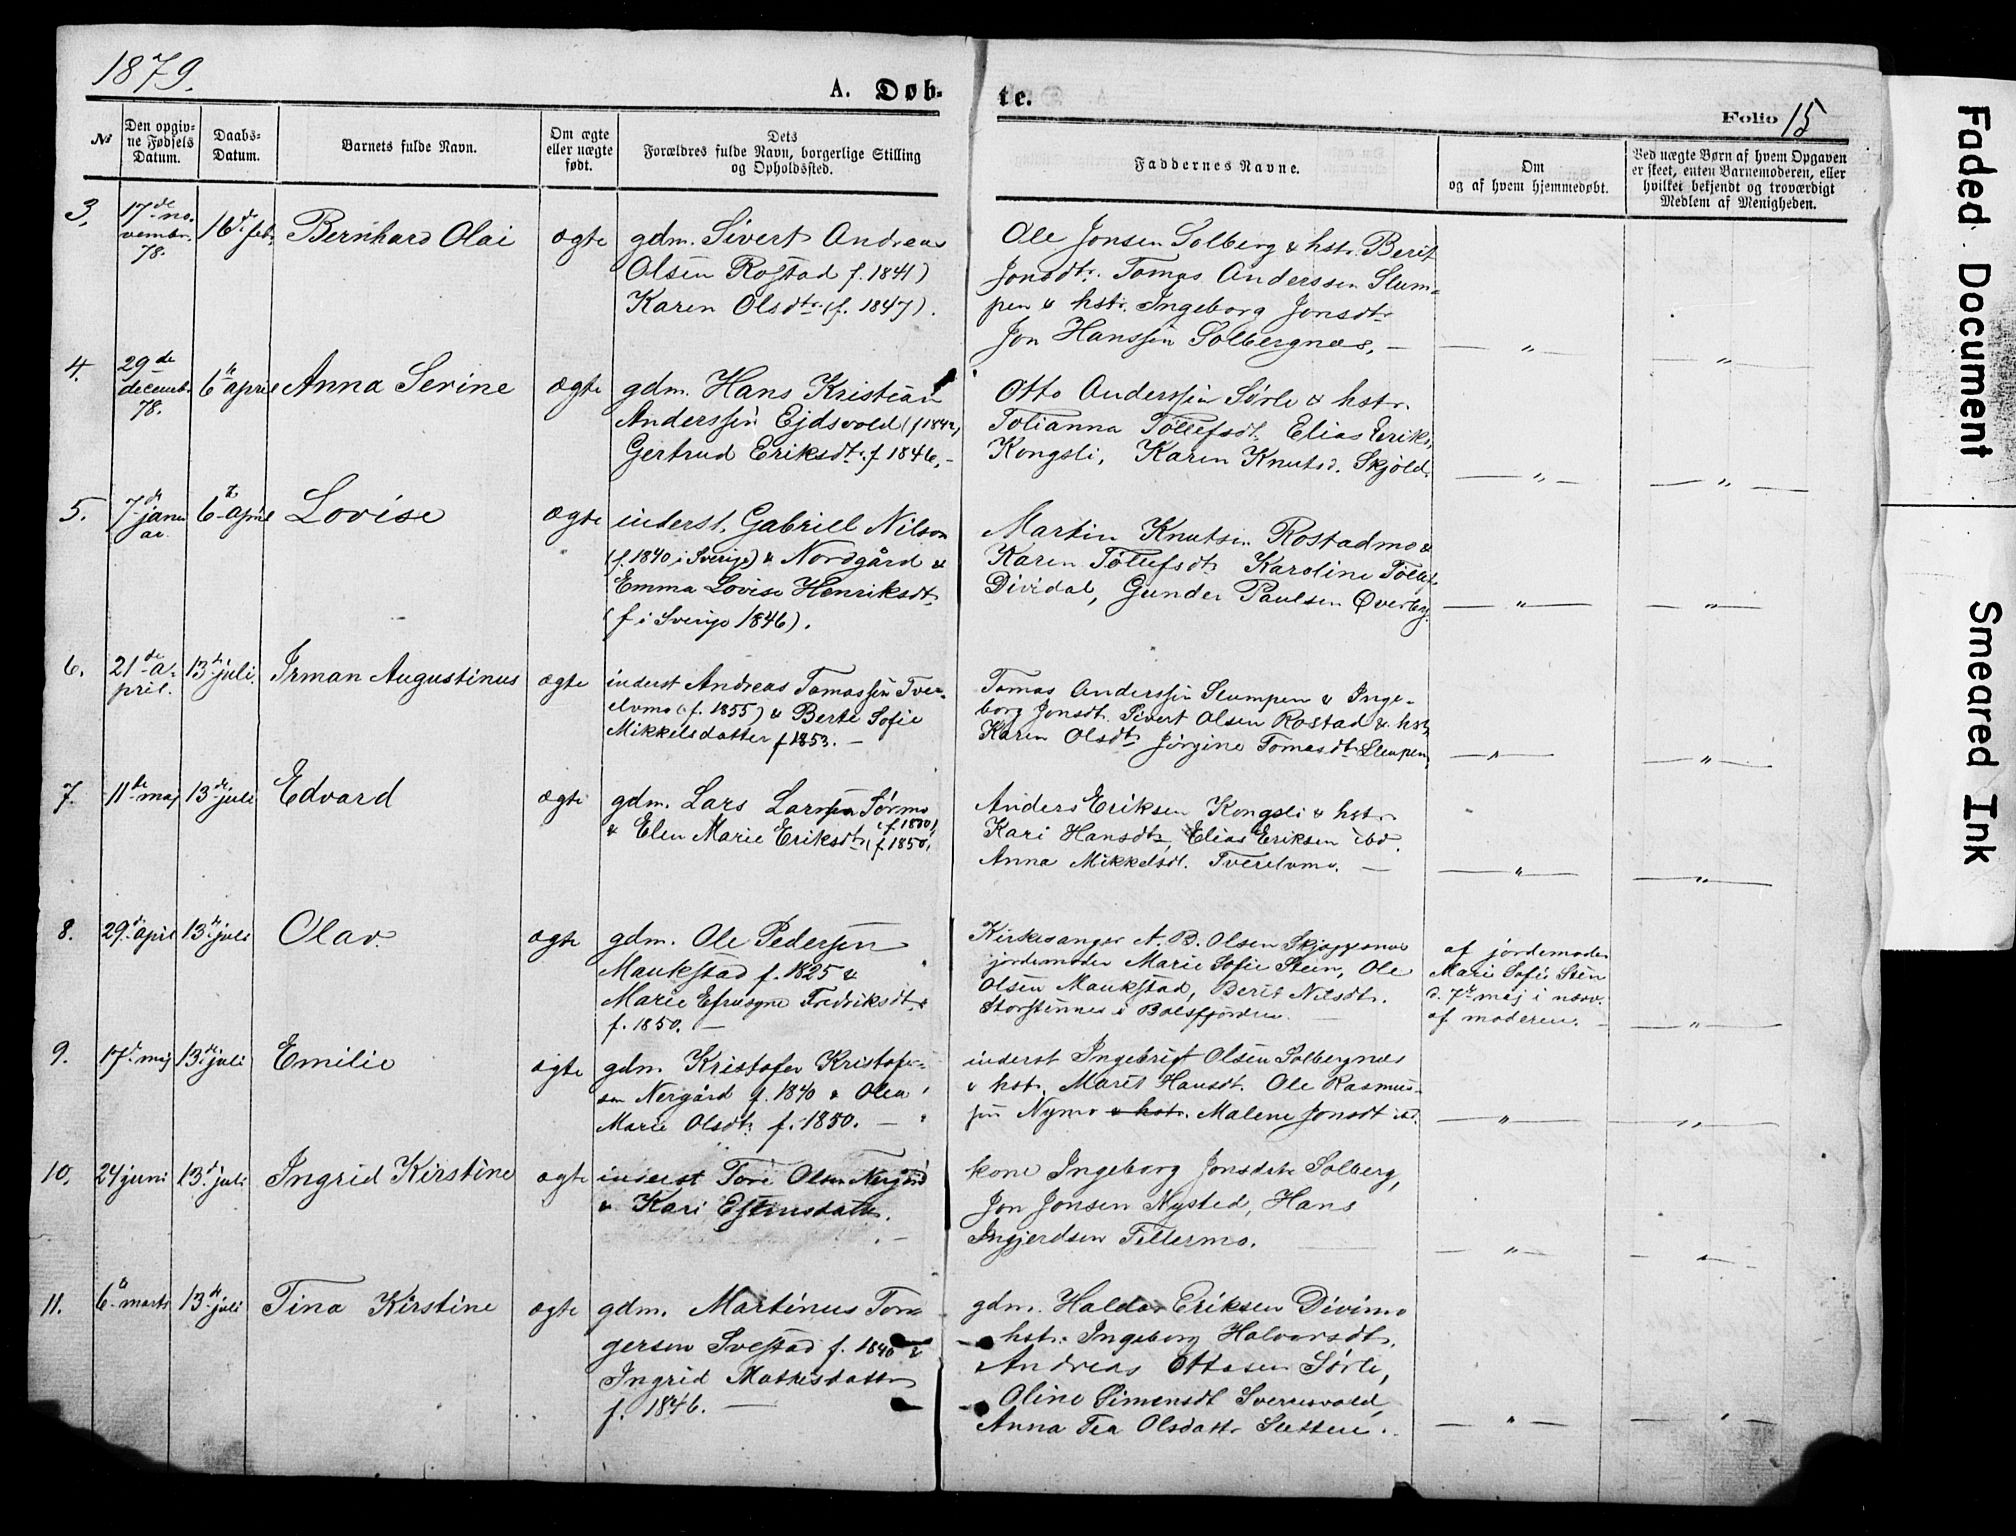 1879.
A. Døb-
te.
Folio 15
No
Den opgiv-
ne Fødsels
Datum.
Daabs-
Datum.
Barnets fulde Navn.
Om ægte
eller uægte
født.
Dets
Forældres fulde Navn, borgerlige Stilling
og Opholdssted.
Faddernes Navne.
Om
og af hvem hjemmedøbt.
Ved uægte Børn af hvem Opgaven
er skeet, enten Barnemoderen, eller
hvilket bekjendt og troværdigt
Medlem af Menigheden.
3.
17de no-
vembr.
78.
16d. feb.
Bernhard Olai
ægte
gdm. Sivert Andreas
Olsen Rostad f. 1841)
Karen Olsdtr. (f. 1847).
Ole Jonsen Solberg & hstr. Berit
Jonsdtr. Tomas Anderssen Slum-
pen & hstr. Ingeborg Jonsdtr
Jon Hanssen Solbergnæs. —
— " —
— " —
4.
29de
decemb.
78.
6 april
Anna Serine
ægte
gdm. Hans Kristian
Anderssen Ejdsvold (f 1842,
Gertrud Eriksdtr. f 1846, —
Otto Anderssen Sørli & hstr.
Tolianna Tollefsdt. Elias Eriks,
Kongsli, Karen Knutsd. Skjold.
— " —
— " —
5.
7de janu
ar.
6 april
Lovise
ægte
inderst. Gabriel Nilson
(f. 1840 i Sverige) & Nordgård &
Emma Lovise Henriksdt.
(f i Sverige 1846).
Martin Knutsen Rostadmo &
Karen Tollefsdt. Karoline Tollef
Dividal, Gunder Paulsen Øverby.
— " —
— " —
6.
21de a-
pril.
13d juli.
Irman Augustinus
ægte
inderst Andreas Tomassen Tver-
elvmo (f. 1855) & Berte Sofie
Mikkelsdatter f 1853. —
Tomas Anderssen Slumpen & Inge-
borg Jonsdt. Sivert Olsen Rostad & hst.
Karen Olsdt. Jørgine Tomasdt. Slumpen,
— " —
— " —
7.
11de maj
13de juli
Edvard
ægte
gdm. Lars Larssen Sørmo
(f. 1830)
& Elen Marie Eriksdtr (f 1850.
Anders Eriksen Kongsli & hstr
Kari Hansdtr, Elias Eriksen ibd.
Anna Mikkelsdt. Tverelvmo. —
— " —
— " —
8.
29d. april
13d. juli
Olav
ægte
gdm. Ole Pedersen
Maukstad f. 1825 &
Marie Efrosyne Fredriksdt. &
f. 1850. —
Kirkesanger A. B. Olsen Skjæggesnæs
jordemoder Marie Sofie Steen, Ole
Olsen Maukstad, Berit Nilsdt.
Storstennes i Balsfjorden. —
af jordemoder
Marie Sofie Sten
d. 7de maj i nærv.
af moderen. —
— " —
9.
17d maj
13de juli
Emilie
ægte
gdm. Kristofer Kristofer-
sen Nergård f. 1840 & Olea
Marie Olsdtr f. 1850. —
inderst Ingebrigt Olsen Solbergnæs
& hstr. Marit Hansdt. Ole Rasmus-
sen Nymo & hstr. Malene Jonsdt ibd.
— " —
— " —
10.
24 juni
13d. juli
Ingrid Kirstine
ægte
inderst Tore Olsen Nergård
& Kari Estensdatter.
kone Ingeborg Jonsdatr Solberg,
Jon Jonsen Nysted, Hans
Ingjerdsen Tillermo. —
— " —
— " —
11.
6te marts
13de juli
Tina Kirstine
ægte
gdm. Martinus Tor-
gersen Svestad f. 1840 &
Ingrid Mathisdatter
f. 1846. —
gdm. Haldor Eriksen Divimo
hstr. Ingeborg Halvorsdt.
Andreas Ottosen Sørli,
Oline Simensdt Sverresvold,
Anna Tea Olsdattr Sletten.
— " —
— " —
Faded Document
Smeared Ink